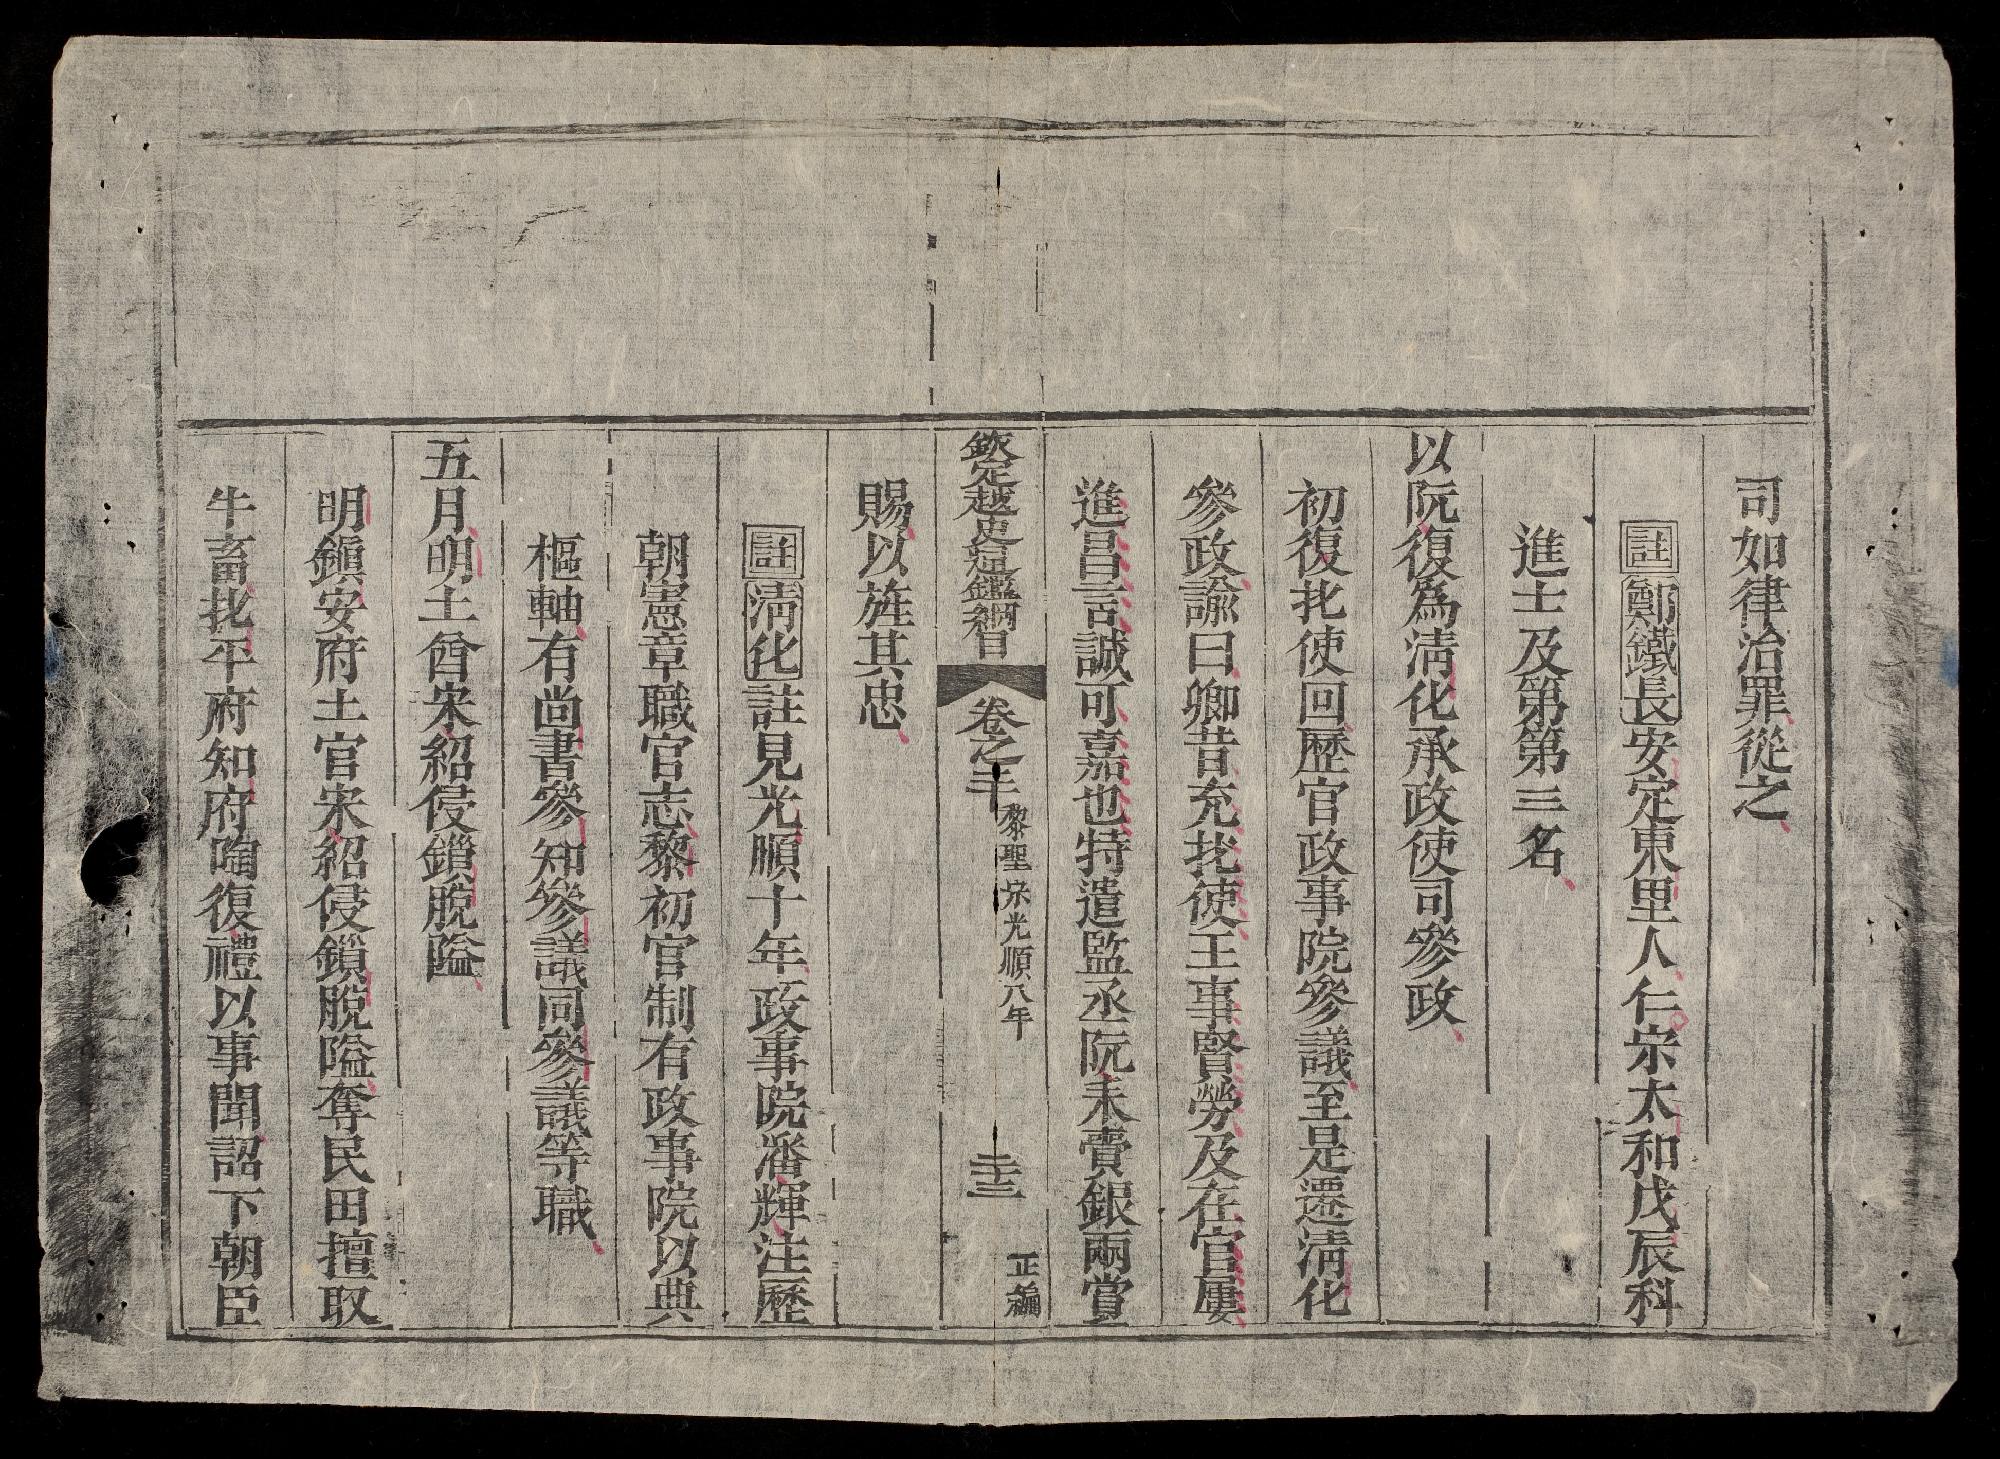 司如律治罪從之
註鄭鐵長安定東里人仁宗太和戊辰科
進士及第第三名
以阮復為清化承政使司參政
初復北使回歷官政事院參議至是遷清化
參政諭曰卿昔充北使王事賢勞及在官屢
進昌言誠可嘉也特遣監丞阮耒賚銀兩賞
欽定越史通鑑綱目 卷之二十 黎聖宗光順八年 三十三 正編
賜以旌其忠
註清化註見光順十年政事院潘輝注歷
朝憲章職官志黎初官制有政事院以典
樞軸有尚書參知參議同參議等職
五月明土酋宋紹侵鎖脫隘
明鎮安府土官宋紹侵鎖脫隘奪民田擅取
牛畜北平府知府陶復禮以事聞詔下朝臣